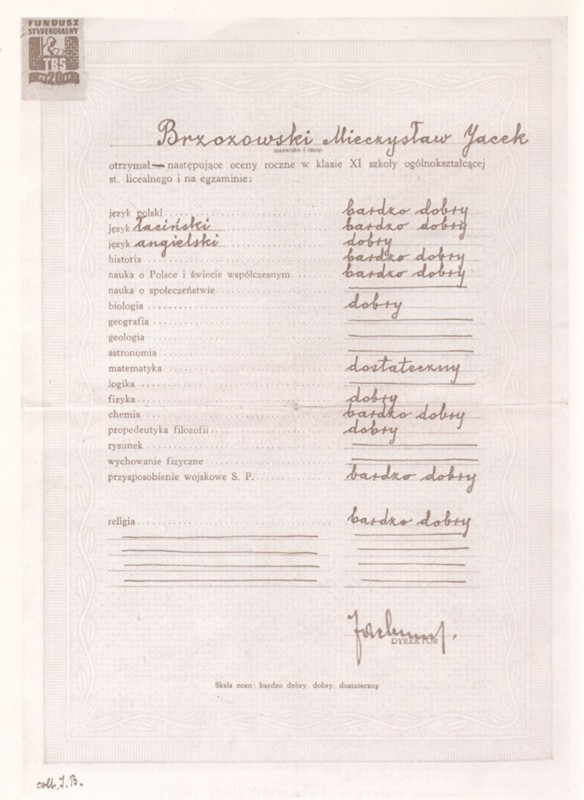 FUNDUSZ
STYPENDIALNY
TBS
20
Brzozowski Mieczysław Jacek
(nazwisko i imię)
otrzymał — następujące oceny roczne w klasie XI szkoły ogólnokształcącej
st. licealnego i na egzaminie:
język polski bardzo dobry
język łaciński bardzo dobry
język angielski dobry
historia bardzo dobry
nauka o Polsce i świecie współczesnym bardzo dobry
nauka o społeczeństwie
biologia dobry
geografia
geologia
astronomia
matematyka dostateczny
logika
fizyka dobry
chemia bardzo dobry
propedeutyka filozofii dobry
rysunek
wychowanie fizyczne
przysposobienie wojskowe S. P. bardzo dobry
religia bardzo dobry
DYREKTOR
Skala ocen: bardzo dobry, dobry, dostateczny
coll. J. B.